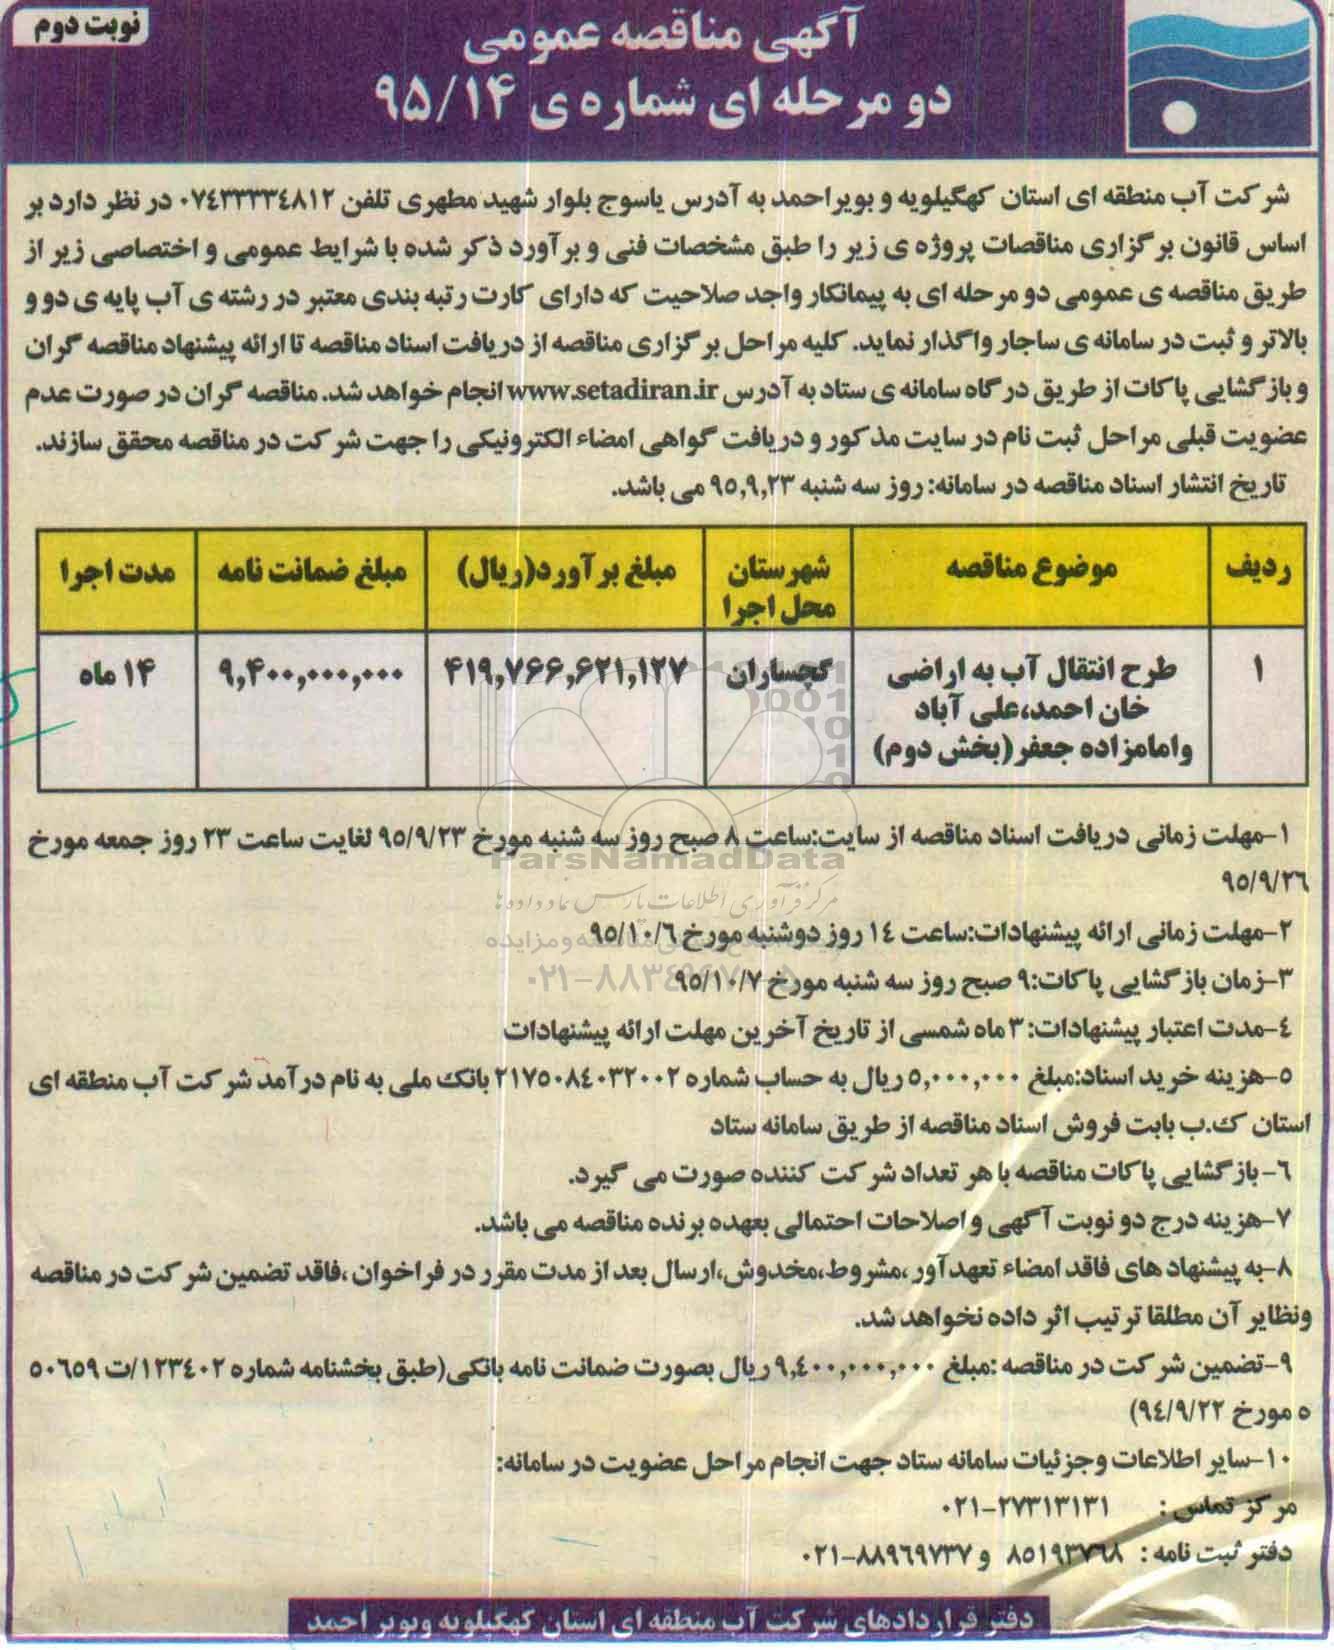 نوبت دوم
آگهی مناقصه عمومی
دو مرحله ای شماره ی ۹۵/۱۴
شرکت آب منطقه ای استان کهگیلویه و بویراحمد به آدرس یاسوج بلوار شهید مطهری تلفن ۰۷۴۳۳۳۳۴۸۱۲ در نظر دارد بر
اساس قانون برگزاری مناقصات پروژه ی زیر را طبق مشخصات فنی و برآورد ذکر شده با شرایط عمومی و اختصاصی زیر از
طریق مناقصه ی عمومی دو مرحله ای به پیمانکار واجد صلاحیت که دارای کارت رتبه بندی معتبر در رشته ی آب پایه ی دو و
بالاتر و ثبت در سامانه ی ساجار واگذار نماید. کلیه مراحل برگزاری مناقصه از دریافت اسناد مناقصه تا ارائه پیشنهاد مناقصه گران
و بازگشایی پاکات از طریق درگاه سامانه ی ستاد به آدرس www.setadiran.ir انجام خواهد شد. مناقصه گران در صورت عدم
عضویت قبلی مراحل ثبت نام در سایت مذکور و دریافت گواهی امضاء الکترونیکی را جهت شرکت در مناقصه محقق سازند.
تاریخ انتشار اسناد مناقصه در سامانه: روز سه شنبه ۹۵,۹,۲۳ می باشد.
ردیف موضوع مناقصه شهرستان محل اجرا مبلغ برآورد(ریال) مبلغ ضمانت نامه مدت اجرا
۱ طرح انتقال آب به اراضی گچساران ۴۱۹,۷۶۶,۶۲۱,۱۲۷ ۹,۴۰۰,۰۰۰,۰۰۰ ۱۴ ماه
خان احمد،علی آباد
وامامزاده جعفر(بخش دوم)
۱-مهلت زمانی دریافت اسناد مناقصه از سایت:ساعت ۸ صبح روز سه شنبه مورخ ۹۵/۹/۲۳ لغایت ساعت ۲۳ روز جمعه مورخ
۹۵/۹/۲۶
ParsNamadData
مرکز فرآوری اطلاعات پارس نماد داده ها
۲-مهلت زمانی ارائه پیشنهادات:ساعت ۱۴ روز دوشنبه مورخ ۹۵/۱۰/۶
۳-زمان بازگشایی پاکات:۹ صبح روز سه شنبه مورخ ۹۵/۱۰/۷
۴-مدت اعتبار پیشنهادات: ۳ ماه شمسی از تاریخ آخرین مهلت ارائه پیشنهادات
۵-هزینه خرید اسناد:مبلغ ۵,۰۰۰,۰۰۰ ریال به حساب شماره ۲۱۷۵۰۸۴۰۳۲۰۰۲ بانک ملی به نام درآمد شرکت آب منطقه ای
استان ک.ب بابت فروش اسناد مناقصه از طریق سامانه ستاد
۶- بازگشایی پاکات مناقصه با هر تعداد شرکت کننده صورت می گیرد.
۷-هزینه درج دو نوبت آگهی و اصلاحات احتمالی بعهده برنده مناقصه می باشد.
۸-به پیشنهاد های فاقد امضاء تعهدآور ،مشروط،مخدوش،ارسال بعد از مدت مقرر در فراخوان ،فاقد تضمین شرکت در مناقصه
ونظایر آن مطلقا ترتیب اثر داده نخواهد شد.
۹-تضمین شرکت در مناقصه :مبلغ ۹,۴۰۰,۰۰۰,۰۰۰ ریال بصورت ضمانت نامه بانکی(طبق بخشنامه شماره ۱۲۳۴۰۲/ت ۵۰۶۵۹
ه مورخ ۹۴/۹/۲۲)
۱۰-سایر اطلاعات وجزئیات سامانه ستاد جهت انجام مراحل عضویت در سامانه:
مرکز تماس : ۰۲۱-۲۷۳۱۳۱۳۱
دفتر ثبت نامه : ۸۵۱۹۳۷۶۸ و ۰۲۱-۸۸۹۶۹۷۳۷
دفتر قراردادهای شرکت آب منطقه ای استان کهگیلویه وبویر احمد